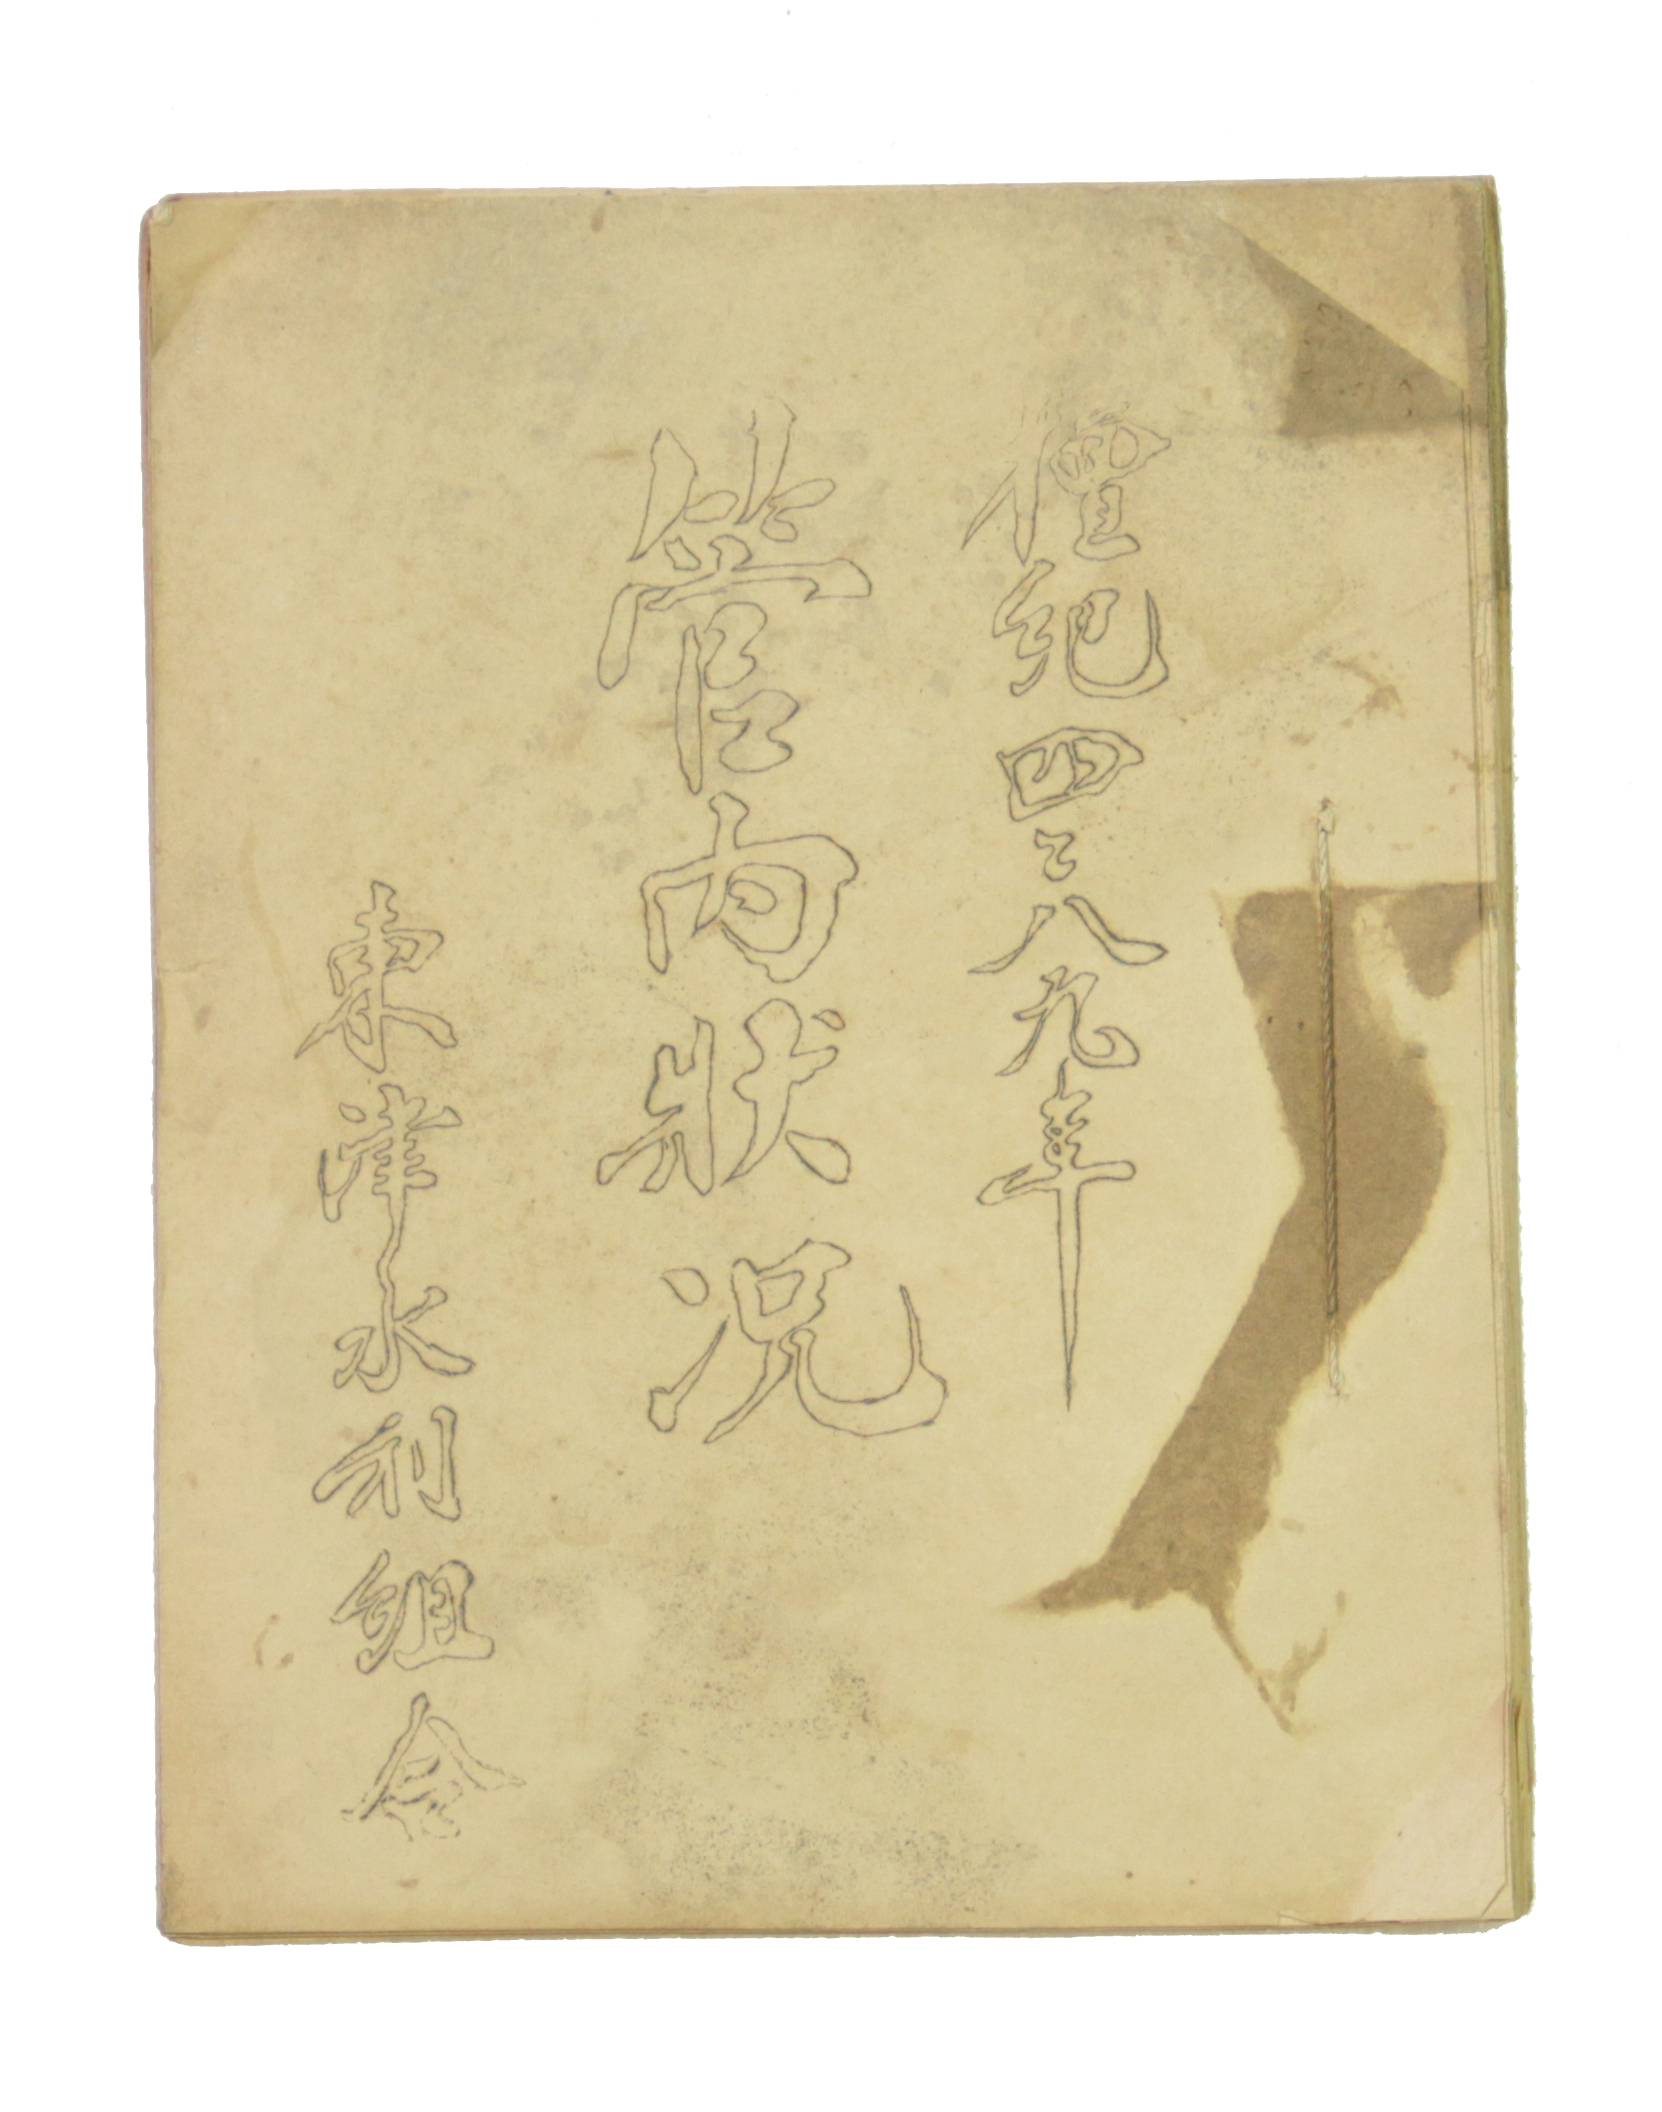 檀紀四二八九年
管内狀况
東津水利組合